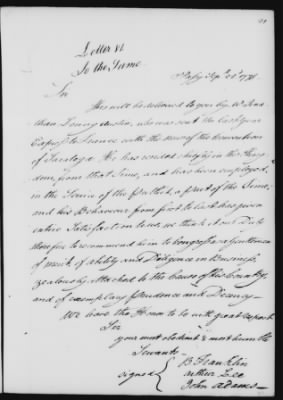 Letter
To the Same
Passy Sept. 1778
Sir
This will be delivered to you by Mr. Jona
than Loring Austin, who was sent the last year
Express to France with the news of the Convention
of Saratoga. He has resided in the King
dom, from that Time, and has been employed,
in the Service of the Public, a part of the Time;
and his Behaviour from first to last has given
entire Satisfaction to us, we think it our Duty
therefore to recommend him to Congress as a Gentleman
of merit, of ability and Diligence in Business,
zealously attached to the Cause of his Country,
and of exemplary Prudence and Decency—
We have the Honor to be with great respect
Sir
your most obedient & most humble
Servants—
signed
B Franklin
Arthur Lee
John Adams—